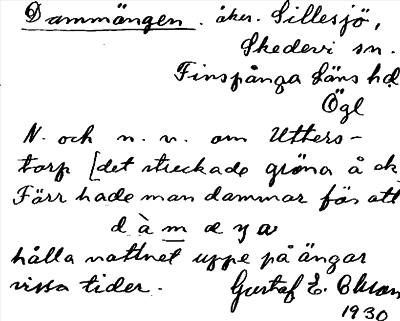 Dammängen. åker. Sillesjö,
Skedevi sn.
Finspånga Läns hd
Ögl
N. och n. v. om Utters-
torp [det streckade gröna å ek.
Förr hade man dammar för att
d à m a y a
hålla vattnet uppe på ängar
vissa tider. Gustaf E. Olsson
1930